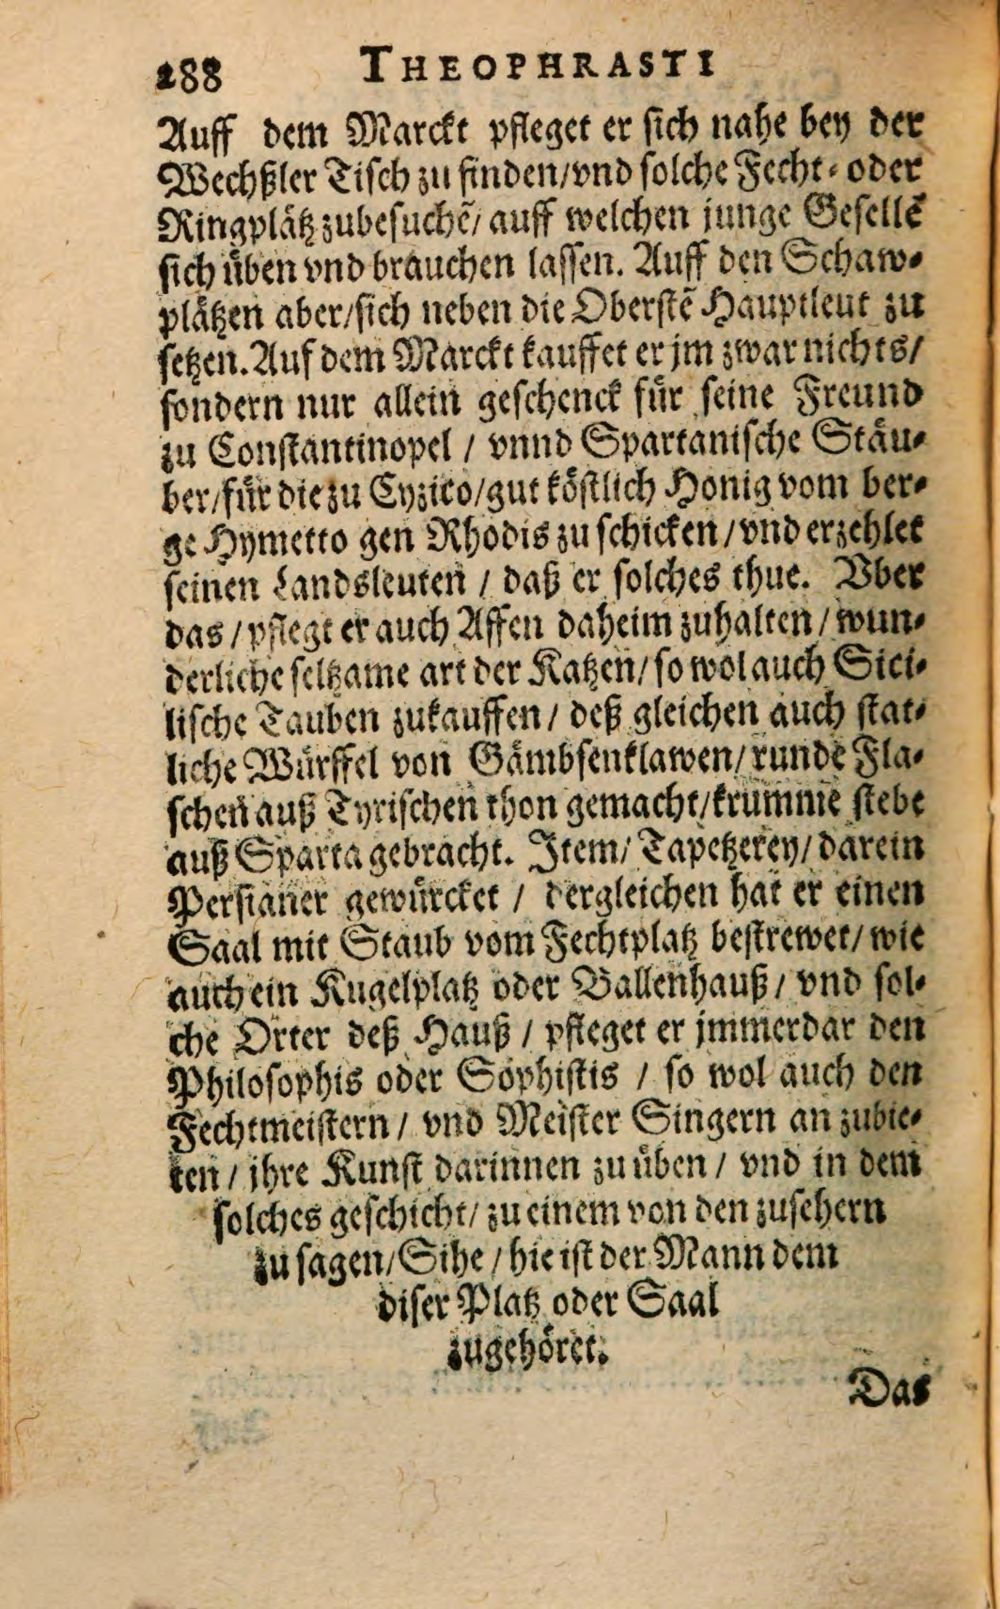 288 THEOPHRASTI
Auff dem Marckt pfleget er sich nahe bey der
Wechßler Tisch zu finden/vnd solche Fecht- oder
Ringplätz zubesuchẽ/ auff welchen junge Gesellẽ
sich üben vnd brauchen lassen. Auff den Schaw-
plätzen aber/sich neben die Oberstẽ Hauptleut zu
setzen. Auf dem Marckt kauffet er jm zwar nichts/
sondern nur allein geschenck für seine Freund
zu Constantinopel / vnnd Spartanische Stäu-
ber/für die zu Cyzico/gut köstlich Honig vom ber-
ge Hymetto gen Rhodis zu schicken/vnd erzehlet
seinen Landsleuten / daß er solches thue. Vber
das/pflegt er auch Affen daheim zuhalten/wun-
derliche seltzame art der Katzen/so wol auch Sici-
lische Tauben zukauffen/ deß gleichen auch stat-
liche Würffel von Gämbsenklawen/runde Fla-
schen auß Tyrischen thon gemacht/krumme stebe
auß Sparta gebracht. Item/ Tapetzerey/darein
Persianer gewürcket / dergleichen hat er einen
Saal mit Staub vom Fechtplatz bestrewet/wie
auch ein Kugelplatz oder Ballenhauß/ vnd sol-
che Orter deß Hauß / pfleget er jmmerdar den
Philosophis oder Sophistis / so wol auch den
Fechtmeistern/ vnd Meister Singern an zubie-
ten/ ihre Kunst darinnen zu üben/ vnd in dem
solches geschicht/ zu einem von den zusehern
zu sagen/Sihe/hie ist der Mann dem
diser Platz oder Saal
zugehöret.
Das